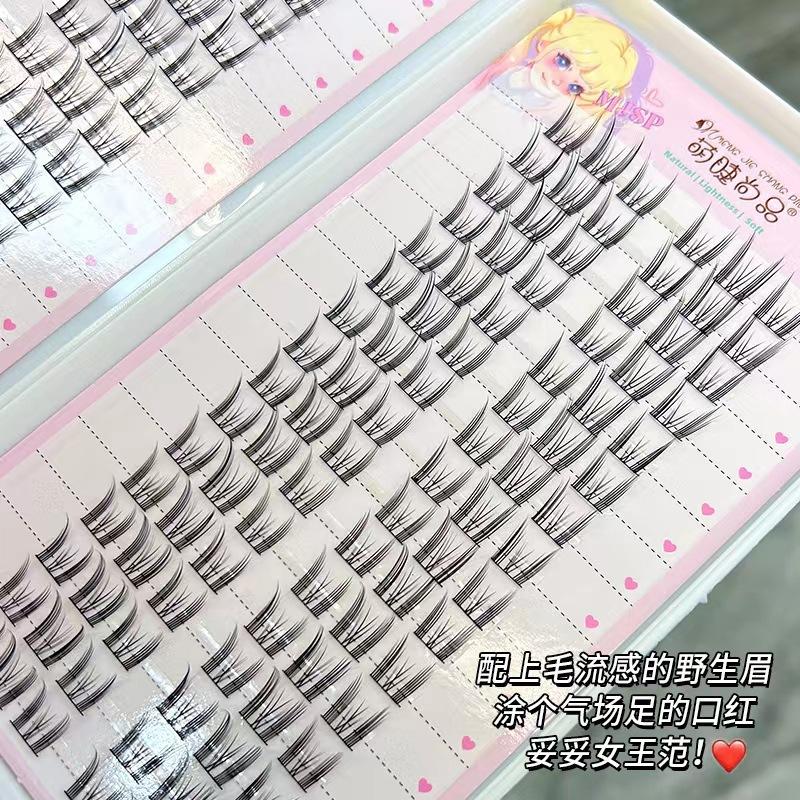 MJSP
MENG JIE SHANG PIN
萌睫尚品®
Natural | Lightness | Soft
配上毛流感的野生眉
涂个气场足的口红
妥妥女王范！❤️